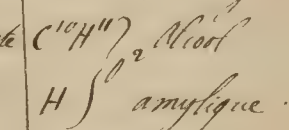 C¹⁰H¹¹ } O² Alcool
H } amylique.